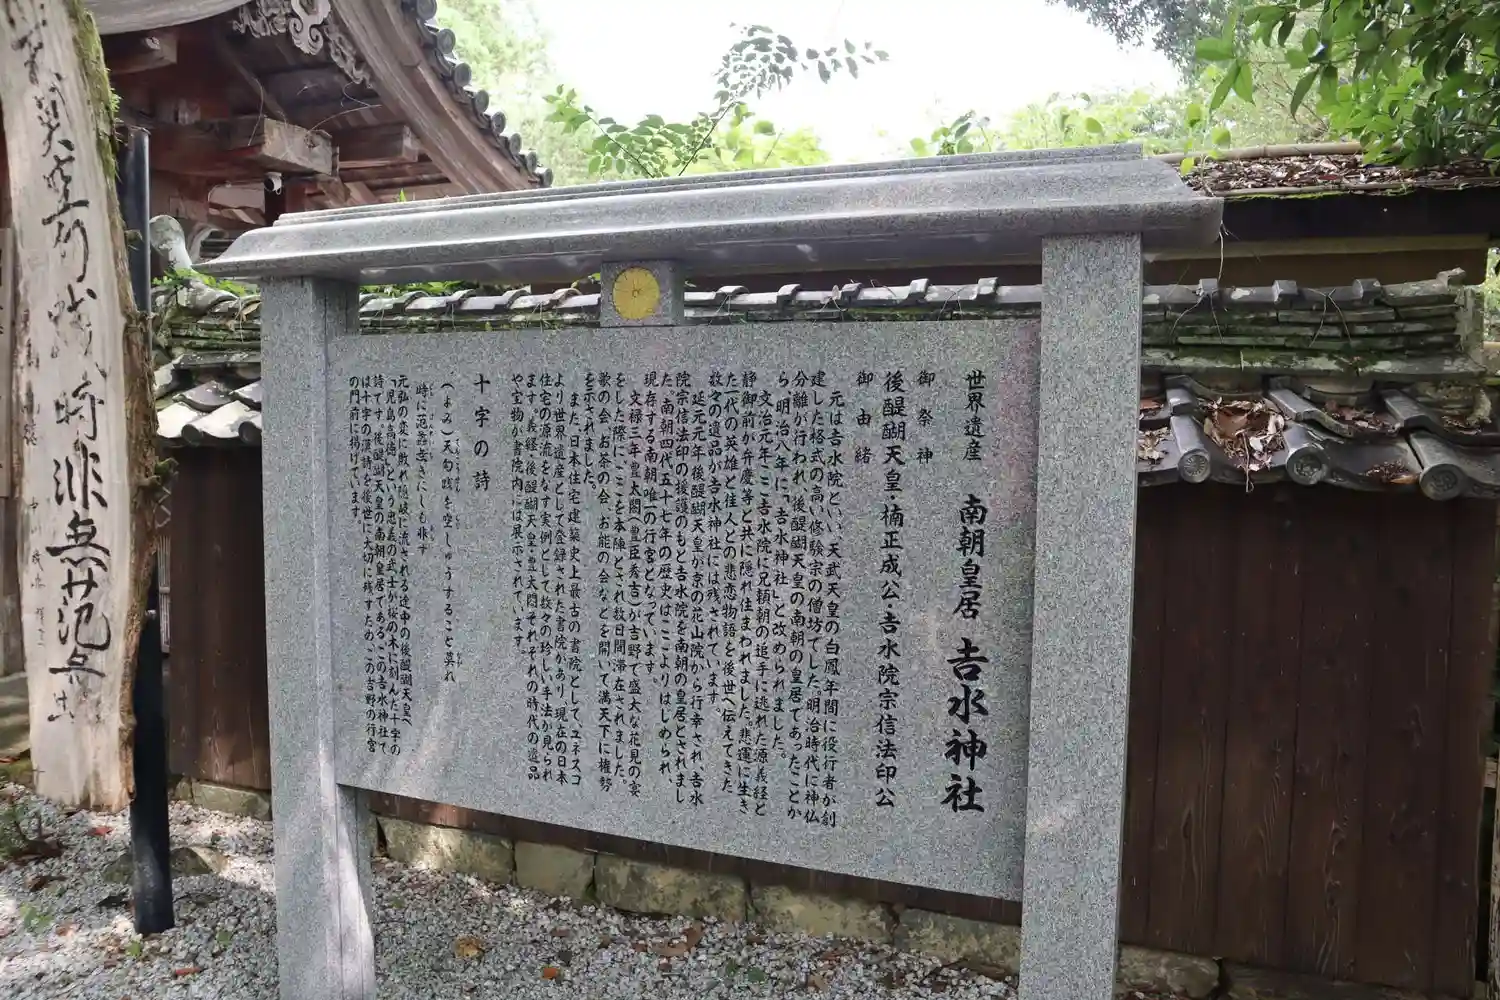 世界遺産　南朝皇居　吉水神社
御祭神
後醍醐天皇・楠正成公・吉水院宗信法印公
御由緒
元は吉水院といい、天武天皇の白鳳年間に役行者が創
建した格式の高い修験宗の僧坊でした。明治時代に神仏
分離が行われ、後醍醐天皇の南朝の皇居であったことか
ら、明治八年に「吉水神社」と改められました。
文治元年ここ吉水院に兄頼朝の追手に逃れた源義経と
静御前が弁慶等と共に隠れ住まわれました。悲運に生き
た一代の英雄と佳人との悲恋物語を後世へ伝えてきた
数々の遺品が吉水神社には残されています。
延元元年後醍醐天皇が京の花山院から行幸され、吉水
院宗信法印の援護のもと吉水院を南朝の皇居とされまし
た。南朝四代五十七年の歴史はここよりはじめられ、
現存する南朝唯一の行宮となっています。
文禄三年豊太閤(豊臣秀吉)が吉野で盛大な花見の宴
をした際に、ここを本陣とされ数日間滞在されました。
歌の会、お茶の会、お能の会などを開いて満天下に権勢
を示されました。
また、日本住宅建築史上最古の書院として、ユネスコ
より世界遺産として登録された書院があり、現在の日本
住宅の源流をなす実例として数々の珍しい手法が見られ
ます。義経・後醍醐天皇・豊太閤それぞれの時代の遺品
や宝物が書院内には展示されています。
十字の詩
(よみ)天勾践を空しゅうすること莫れ
時に范蠡無きにしも非ず
元弘の変に敗れ隠岐に流される途中の後醍醐天皇へ
「児島高徳」という忠義の武士が桜の木に刻んだ十字の
詩です。後醍醐天皇の南朝皇居である、この吉水神社で
は十字の漢詩を後世に大切に残すため、この吉野の行宮
の門前に掲げています。
天莫空勾践
時非無范蠡